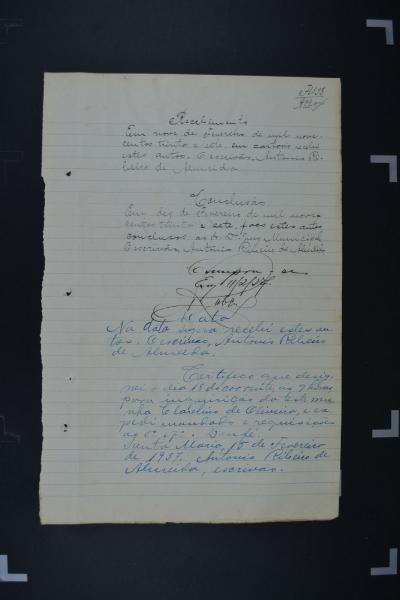 Recebimento
Em nove de Fevereiro de mil nove-
centos trinta e sete, em cartorio recebi
estes autos. O escrivão, Antonio Ri-
beiro de Almeida
Conclusão
Em dez de Fevereiro de mil nove
centos trinta e sete, faço estes autos
conclusos ao Dr. Juiz Municipal.
O escrivão, Antonio Ribeiro de Almeida
Em 11/2/37.
Data
Na data supra recebi estes au-
tos. O escrivão, Antonio Ribeiro
de Almeida.
Certifico que desig-
nei o dia 18 do corrente, as 9 horas
para inquirição da testemu-
nha Clarelino de Oliveira, e ex-
pedi mandado e requisição
Dou fé.
Santa Maria, 15 de Fevereiro
de 1937. Antonio Ribeiro de
Almeida, escrivão.